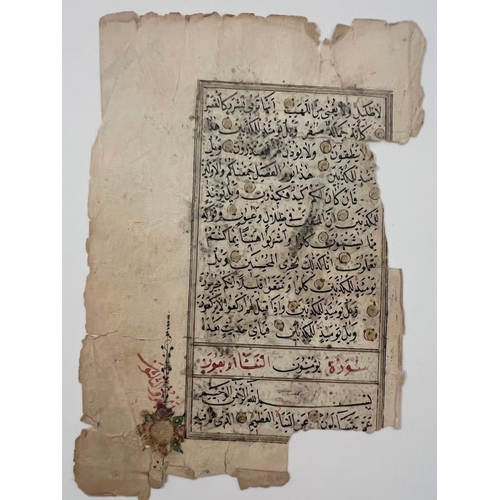 لا ظليل ولا يغني من اللهب انها ترمي بشرر كالقصر
كانه جمالة صفر ويل يومئذ للمكذبين هذا
ينطقون ولا يؤذن فيعتذرون ويل
يومئذ للمكذبين هذا يوم الفصل جمعناكم والاولين
فان كان لكم كيد فكيدون ويل يومئذ
للمكذبين ان المتقين في ظلال وعيون وفواكه
مما يشتهون كلوا واشربوا هنيئا بما كنتم
تعملون انا كذلك نجزي المحسنين ويل
يومئذ للمكذبين كلوا وتمتعوا قليلا انكم مجرمون
ويل يومئذ للمكذبين واذا قيل لهم اركعوا لا يركعون
ويل يومئذ للمكذبين فباي حديث بعده
سورة يومنون النبأ اربعون
بسم الله الرحمن الرحيم
عم يتساءلون عن النبأ العظيم الذي هم فيه